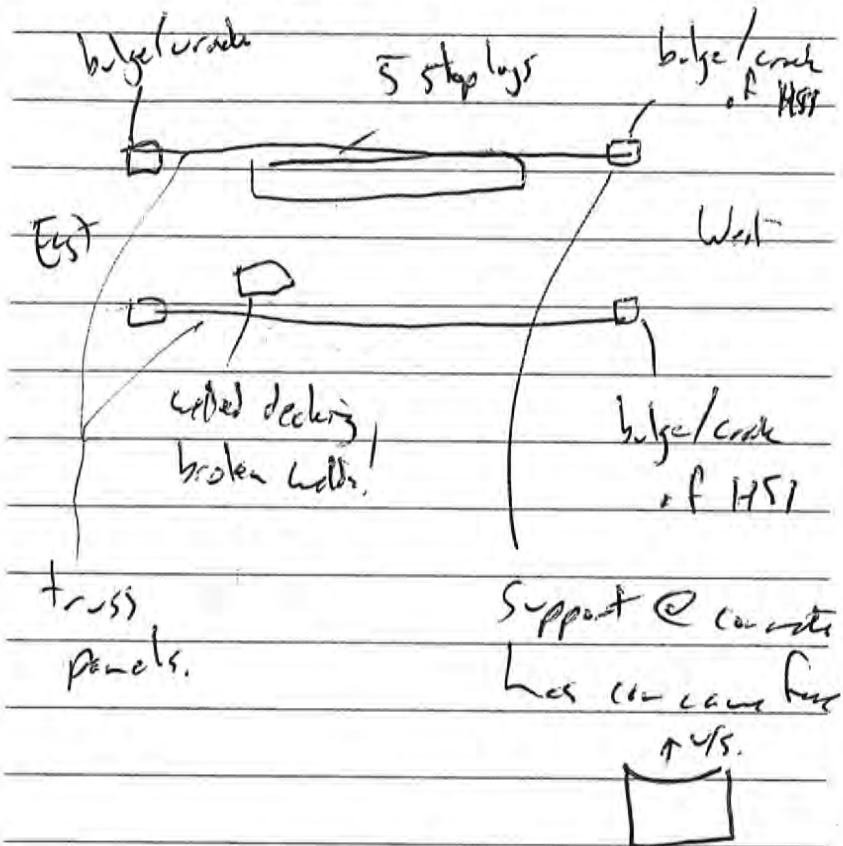 bulge/crack
5 stop logs
bulge/crack
of HSS
East
West
welded decking
broken welds!
bulge/crack
of HSS
truss
panels.
Support @ concrete
has concave face
↑ u/s.